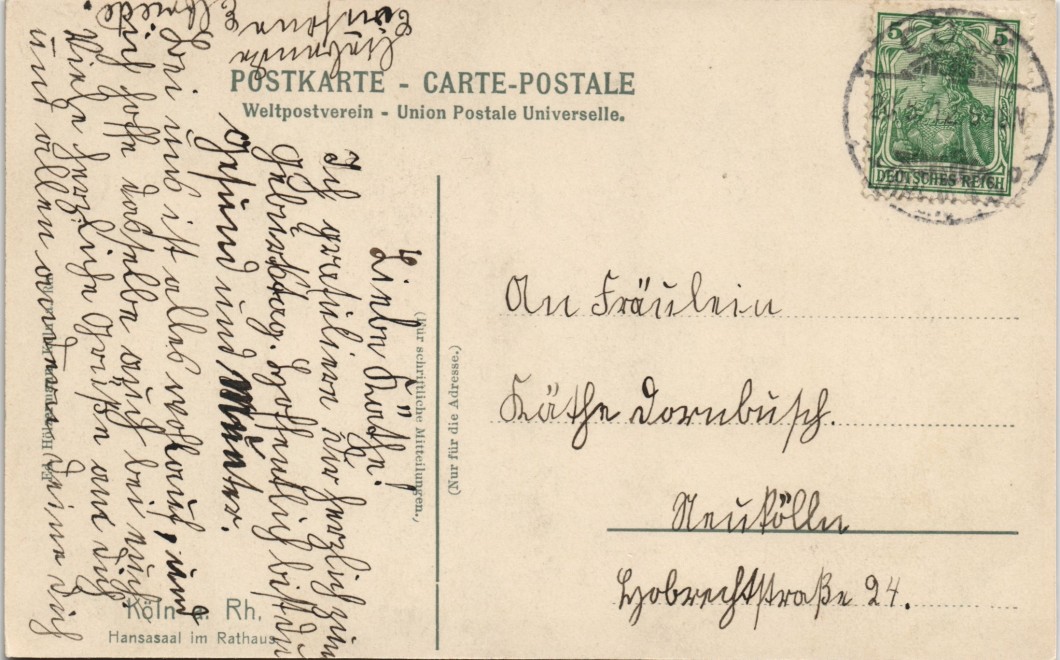 POSTKARTE - CARTE-POSTALE
Weltpostverein - Union Postale Universelle.
5 5
DEUTSCHES REICH
(Für schriftliche Mitteilungen.)
(Nur für die Adresse.)
An Fräulein
Käthe Dornbusch.
Neukölln
Hobrechtstraße 24.
Liebe Käthe!
Ich gratuliere dir herzlich zum
Geburtstag. Hoffentlich bist du
gesund und Munter.
Bei uns ist alles wohlauf, und
ich hoffe dasselbe auch bei euch
Viele herzliche Grüße an dich
und allen von deine dich
liebende
Cousine
Elfriede.
Köln a. Rh.
Hansasaal im Rathaus